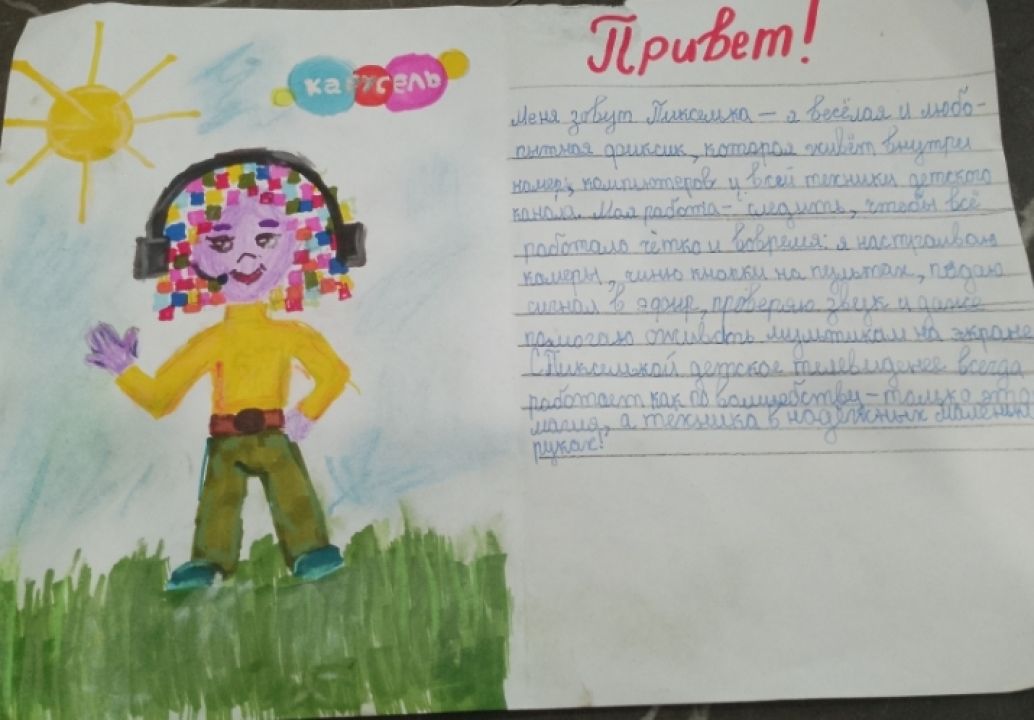 карусель
Привет!
Меня зовут Пикселька – я весёлая и любо-
пытная фиксик, которая живёт внутри
камер, компьютеров и всей техники детского
канала. Моя работа – следить, чтобы всё
работало чётко и вовремя: я настраиваю
камеры, чиню кнопки на пультах, подаю
сигнал в эфир, проверяю звук и даже
помогаю оживать мультикам на экране
С Пикселькой детское телевиденее всегда
работает как по волшебству – только это
магия, а техника в надёжных маленьк
руках!